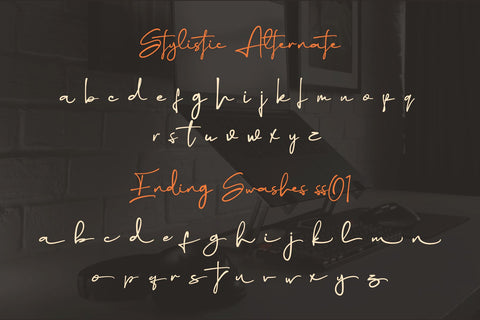 Stylistic Alternate
a b c d e f g h i j k l m n o p q
r s t u v w x y z
Ending Swashes ss01
a b c d e f g h i j k l m n
o p q r s t u v w x y z